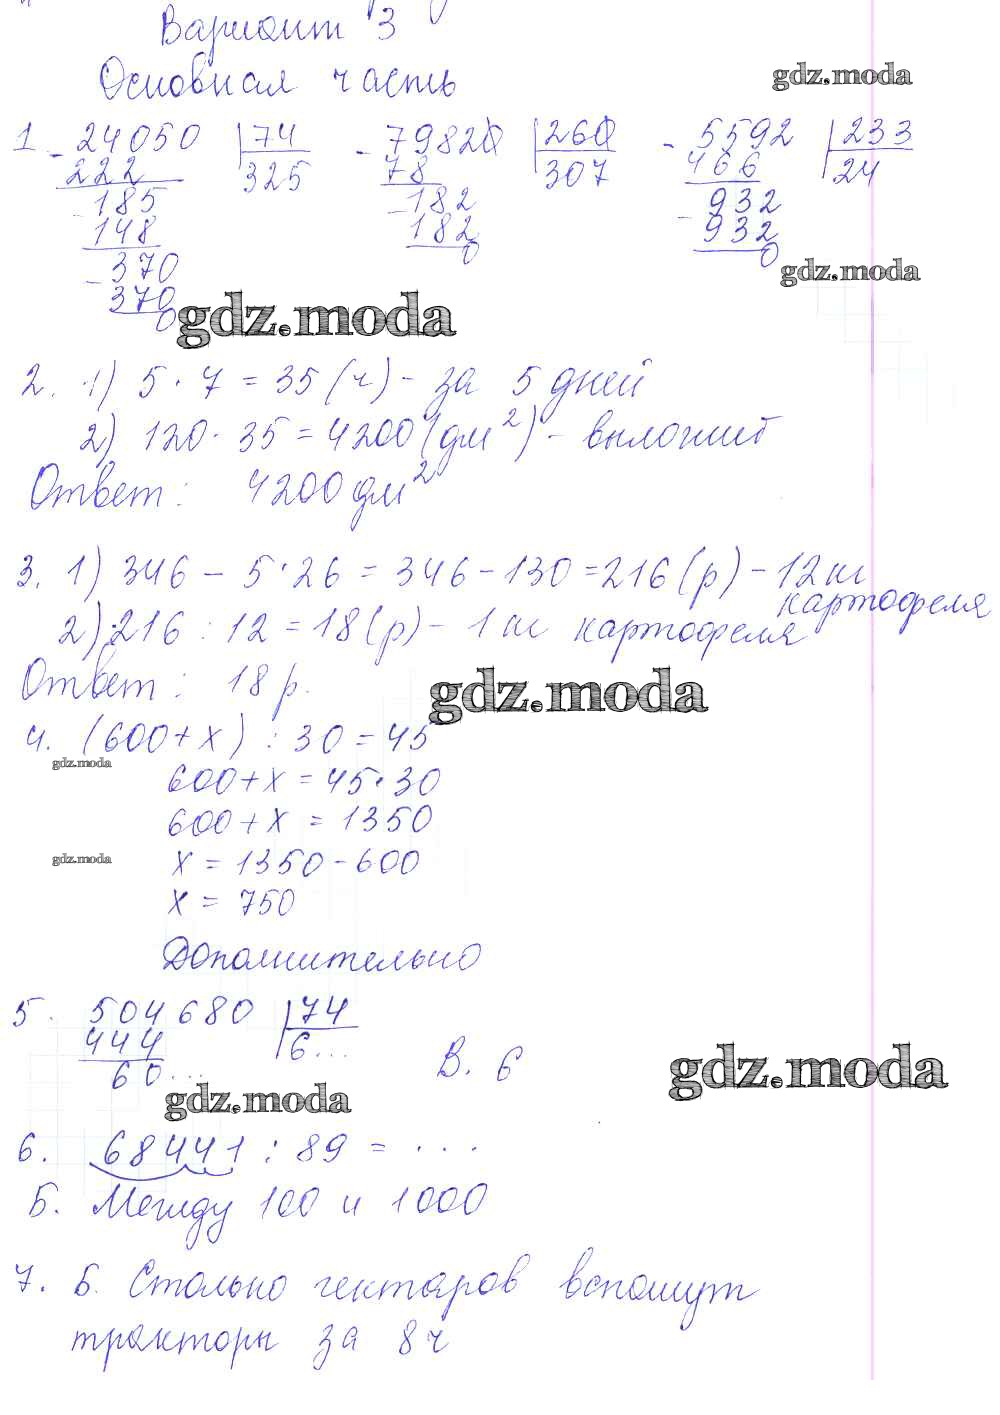 Вариант 3
Основная часть
gdz.moda
1 - 24050 | 74 - 79820 | 260 - 5592 | 233
222 325 78 307 466 24
- 185 - 182 - 932
148 182 932
- 370 0 0
370
0
gdz.moda
gdz.moda
2. 1) 5 · 7 = 35 (ч) - за 5 дней
2) 120 · 35 = 4200 (дм²) - выложит
Ответ: 4200 дм²
3. 1) 346 - 5 · 26 = 346 - 130 = 216 (р) - 12 кг
картофеля
2) 216 : 12 = 18 (р) - 1 кг картофеля
Ответ: 18 р.
gdz.moda
4. (600 + х) : 30 = 45
gdz.moda
600 + х = 45 · 30
600 + х = 1350
gdz.moda
х = 1350 - 600
х = 750
Дополнительно
5. 504680 | 74
444 6...
60... В. 6
gdz.moda
gdz.moda
6. 68441 : 89 = ...
Б. Между 100 и 1000
7. Б. Столько гектаров вспашут
тракторы за 8 ч